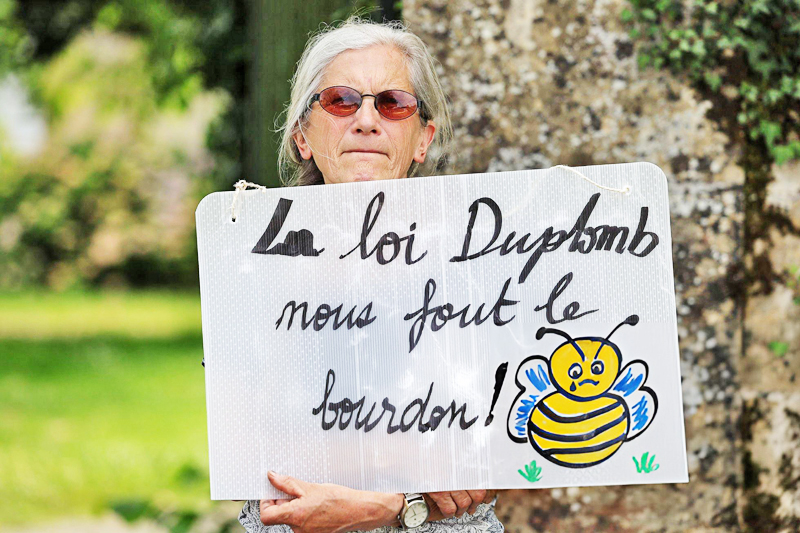 La loi Duplomb
nous fout le
bourdon !